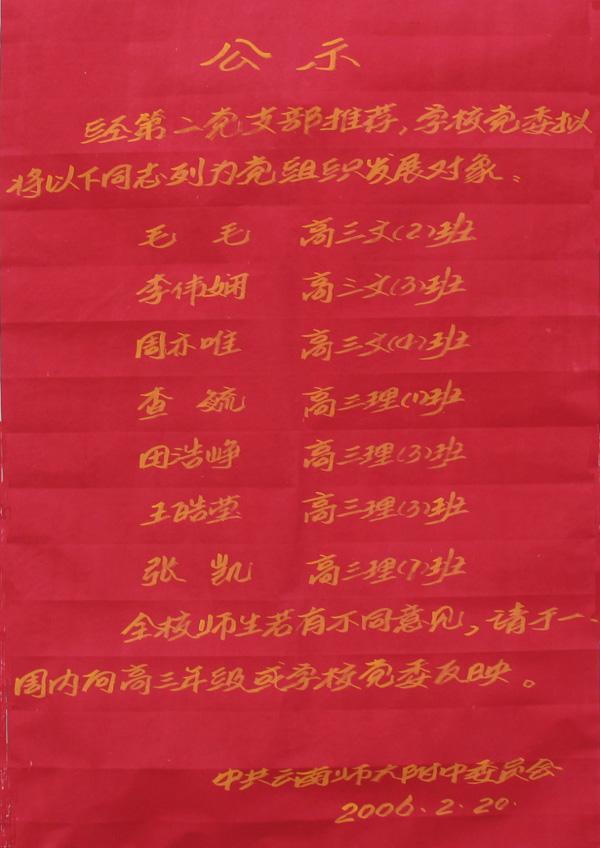 公示
经第二党支部推荐，学校党委拟
将以下同志列为党组织发展对象：
毛 毛 高三文(2)班
李伟娴 高三文(3)班
周亦唯 高三文(4)班
查 毓 高三理(1)班
田浩峥 高三理(3)班
王皓莹 高三理(3)班
张 凯 高三理(7)班
全校师生若有不同意见，请于一
周内向高三年级或学校党委反映。
中共云南师大附中委员会
2006.2.20.